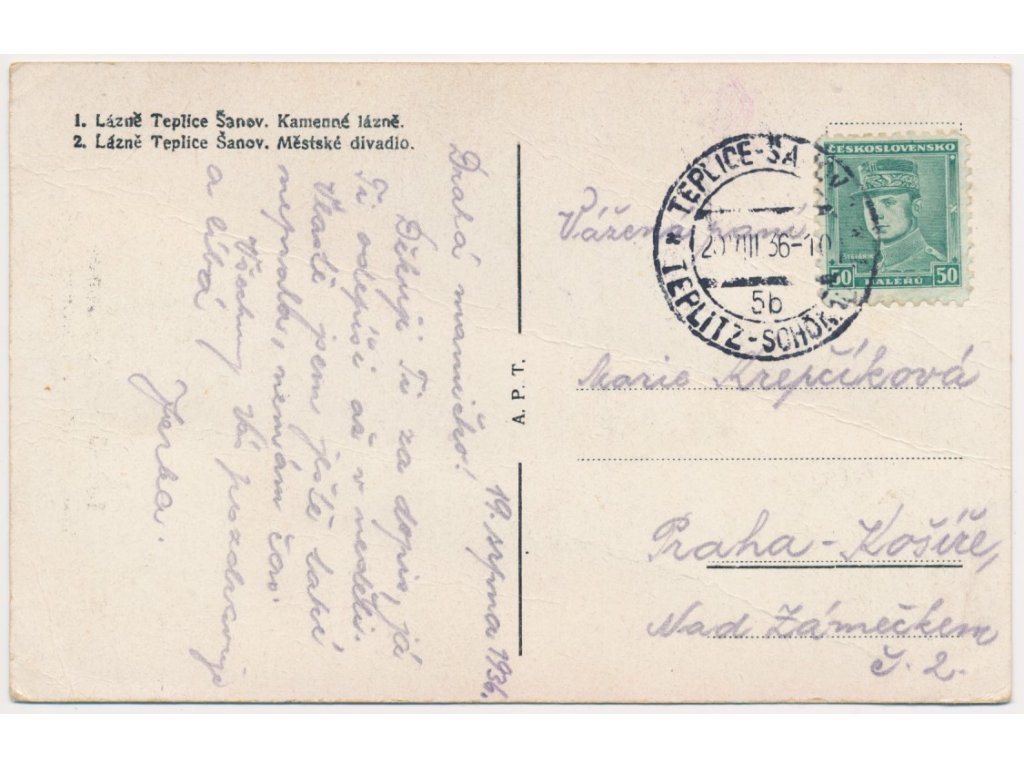 1. Lázně Teplice Šanov. Kamenné lázně.
2. Lázně Teplice Šanov. Městské divadlo.
19. srpna 1936.
Drahá mamičko!
Děkuji Ti za dopis, já
Ti odepíši až v neděli.
Vlastě jsem ještě také
nepsala, nemám čas.
Všechny Vás pozdravuje
a líbá
Jerka.
A. P. T.
TEPLICE-ŠANOV
20 VIII 36-10
5b
TEPLITZ-SCHÖNAU
ČESKOSLOVENSKO
ŠTEFÁNIK
50 HALÉŘŮ 50
Vážená paní
Marie Krejčíková
Praha-Košíře,
Nad Zámečkem
č. 2.